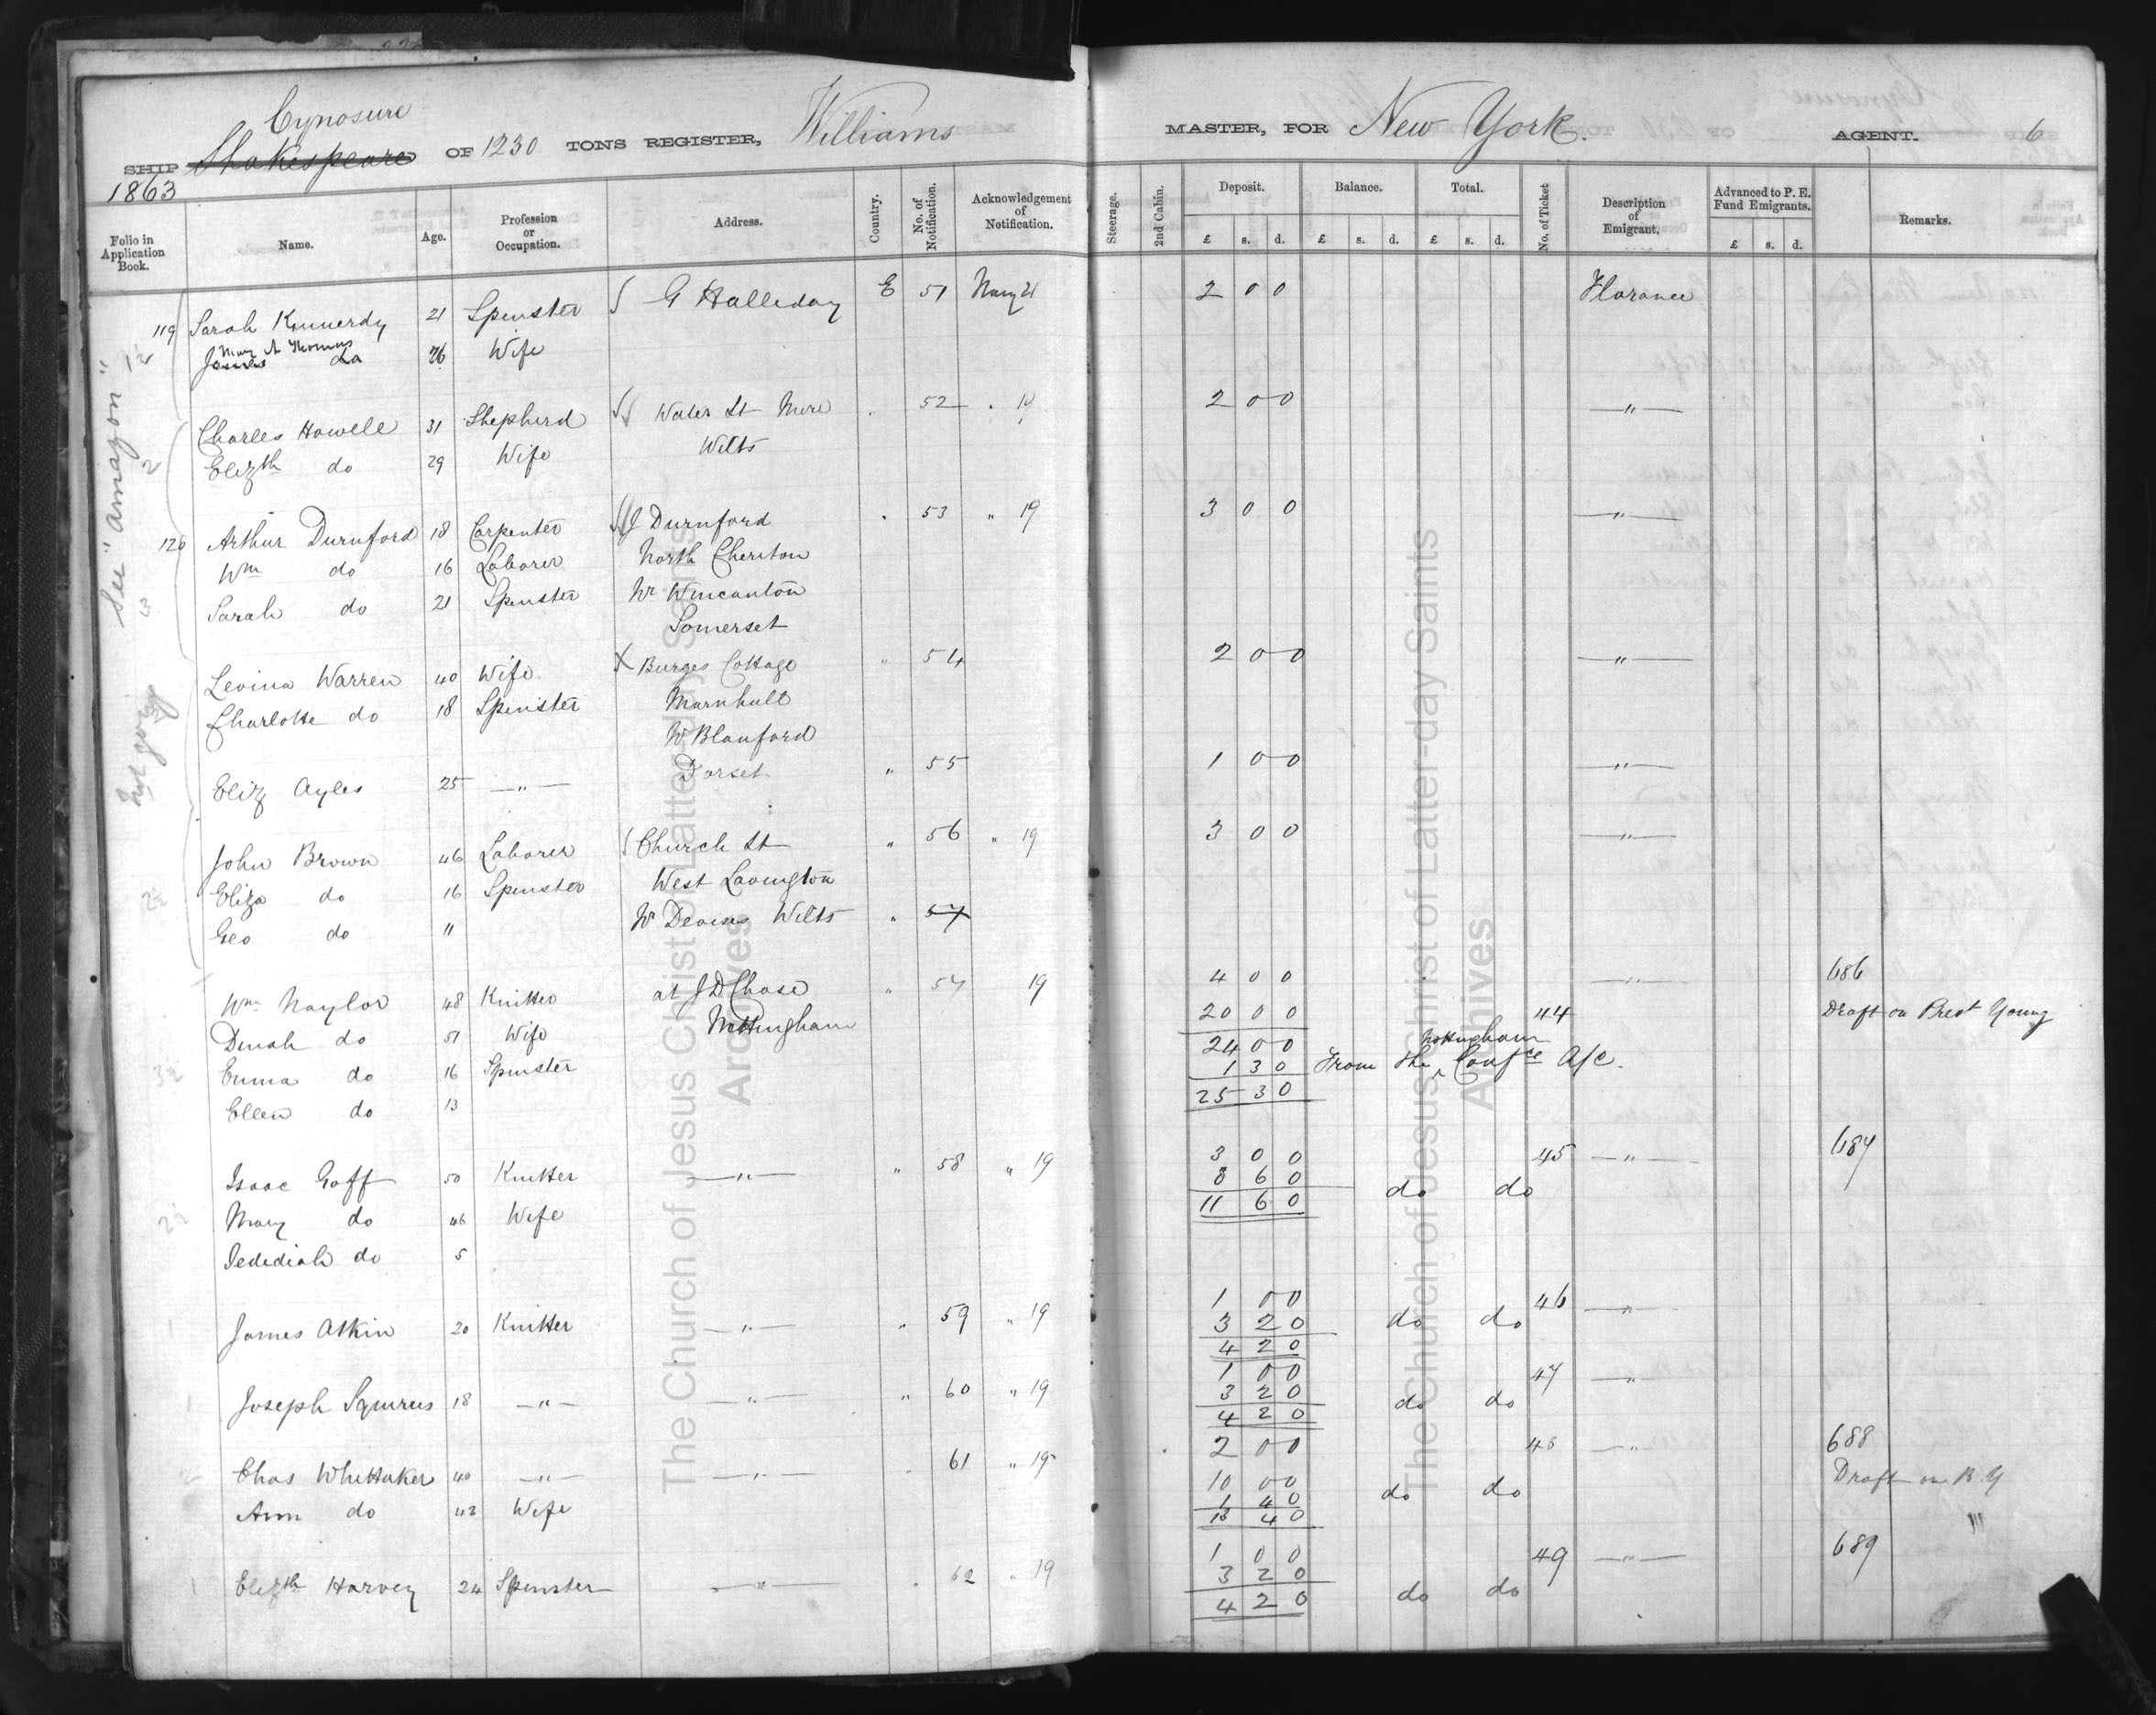 Cynosure
SHIP Shakespeare OF 1230 TONS REGISTER, Williams MASTER, FOR New York. AGENT. 6
1863
Folio in Application Book. Name. Age. Profession or Occupation. Address. Country. No. of Notification. Acknowledgement of Notification. Steerage. 2nd Cabin. Deposit. £ s. d. Balance. £ s. d. Total. £ s. d. No. of Ticket Description of Emigrant. Advanced to P. E. Fund Emigrants. £ s. d. Remarks.
See "Amazon"
Not going
119 Sarah Kennerdy 21 Spinster G Halliday E 51 May 21 2 0 0 Florance
Mary A Thomas
James do 26 Wife
Charles Howell 31 Shepherd Water St Mere " 52 " 19 2 0 0 — " —
Elizth do 29 Wife Wilts
120 Arthur Durnford 18 Carpenter J Durnford " 53 " 19 3 0 0 — " —
Wm do 16 Laborer North Cheriton
Sarah do 21 Spinster Nr Wincanton
Somerset
Levina Warren 40 Wife X Burges Cottage " 54 2 0 0 — " —
Charlotte do 18 Spinster Marnhull
Nr Blanford
Eliz Ayles 25 — " — Dorset " 55 1 0 0 — " —
John Brown 46 Laborer Church St " 56 " 19 3 0 0 — " —
Eliza do 16 Spinster West Lavington
Geo do 11 Nr Devizes Wilts " 57
Wm Naylor 48 Knitter at J D Chase " 57 19 4 0 0 — " — 686
Dinah do 51 Wife Nottingham 20 0 0 44 Draft on Prest Young
24 0 0 Nottingham
Emma do 16 Spinster 1 3 0 From the ^ Confce A/c.
Ellen do 13 25 3 0
Isaac Goff 50 Knitter — " — " 58 " 19 3 0 0 45 — " — 687
8 6 0 do do
Mary do 46 Wife 11 6 0
Jedediah do 5
James Atkin 20 Knitter — " — " 59 " 19 1 0 0 46 — " —
3 2 0 do do
4 2 0
Joseph Squires 18 — " — — " — " 60 " 19 1 0 0 47 — " —
3 2 0 do do
4 2 0
Chas Whittaker 40 — " — — " — " 61 " 19 2 0 0 48 — " — 688
Ann do 43 Wife 10 0 0 do do Draft on B. Y
1 4 0
13 4 0
Elizth Harvey 24 Spinster — " — " 62 " 19 1 0 0 49 — " — 689
3 2 0 do do
4 2 0
The Church of Jesus Christ of Latter-day Saints
Archives
The Church of Jesus Christ of Latter-day Saints
Archives